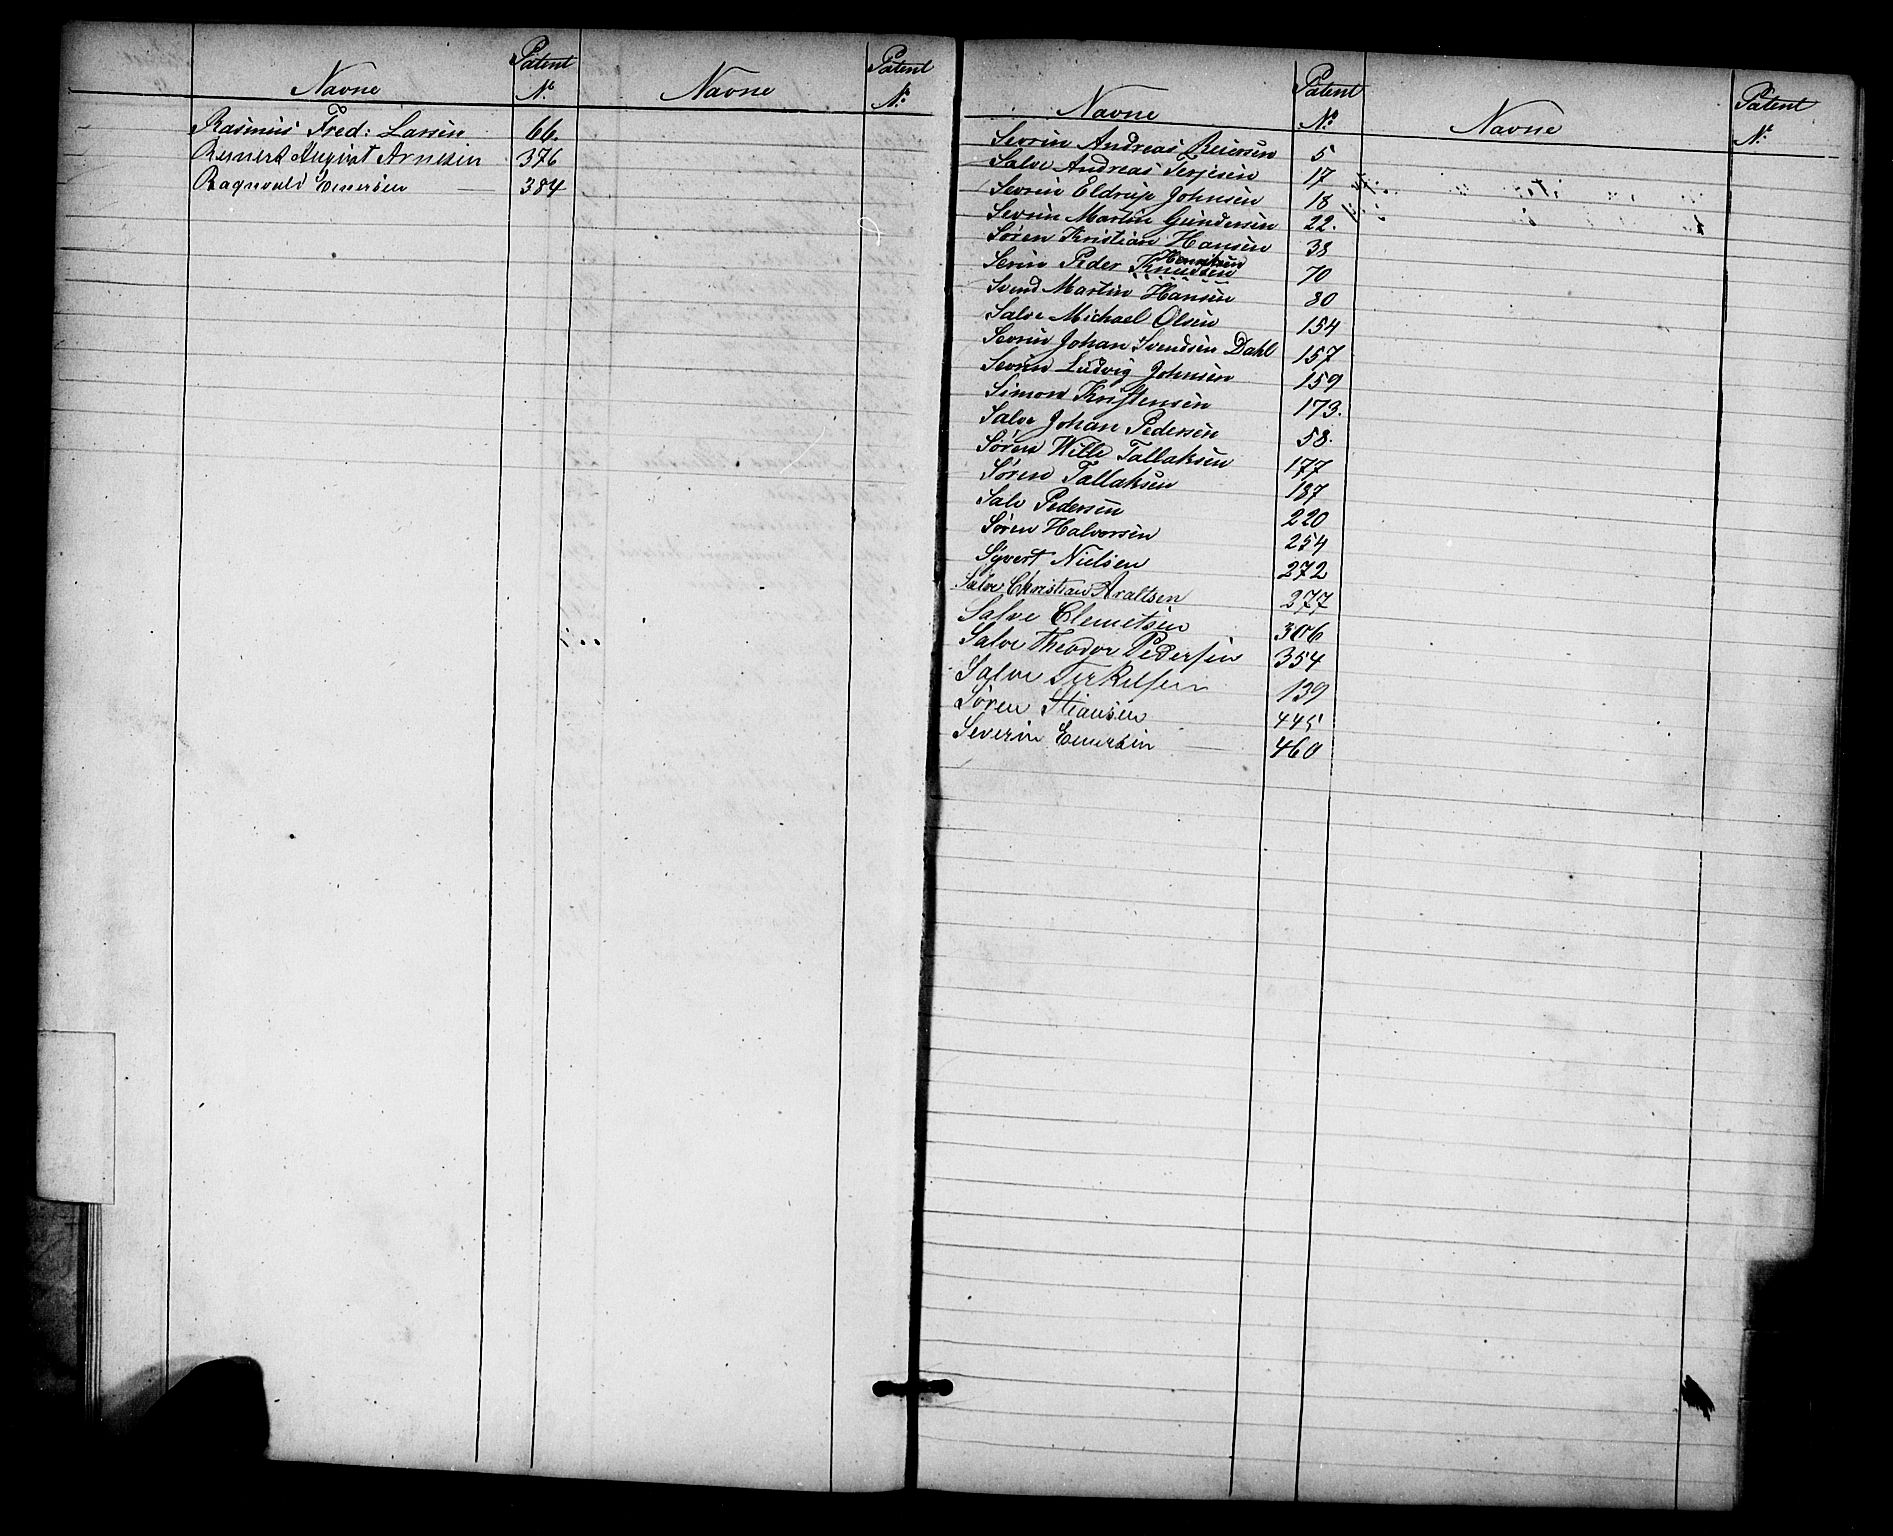 Navne Patent Nº Navne Patent Nº
Rasmus Fred: Larsen 66
Reinert August Arnesen 376
Ragnvald Einersen 384
Navne Patent Nº Navne Patent Nº
Sevrin Andreas Reiersen 5
Salve Andreas Terjesen 17
Sevrin Eldrup Johnsen 18
Sevrin Martin Gundersen 22.
Søren Kristian Hansen 38
Henriksen
Serin Peder Knudsen 70
Svend Martin Hansen 80
Salve Michael Olsen 154
Sevrin Johan Svendsen Dahl 157
Sevrin Ludvig Johnsen 159
Simon Kristensen 173.
Salve Johan Pedersen 58.
Søren Wille Tallaksen 177
Søren Tallaksen 187
Salv Pedersen 220
Søren Halvorsen 254
Syvert Nielsen 272
Salve Christian Araltsen 277
Salve Clemetsen 306
Salve Theodor Pedersen 354
Salve Terkelsen 139
Søren Stiansen 445
Severin Einersen 460